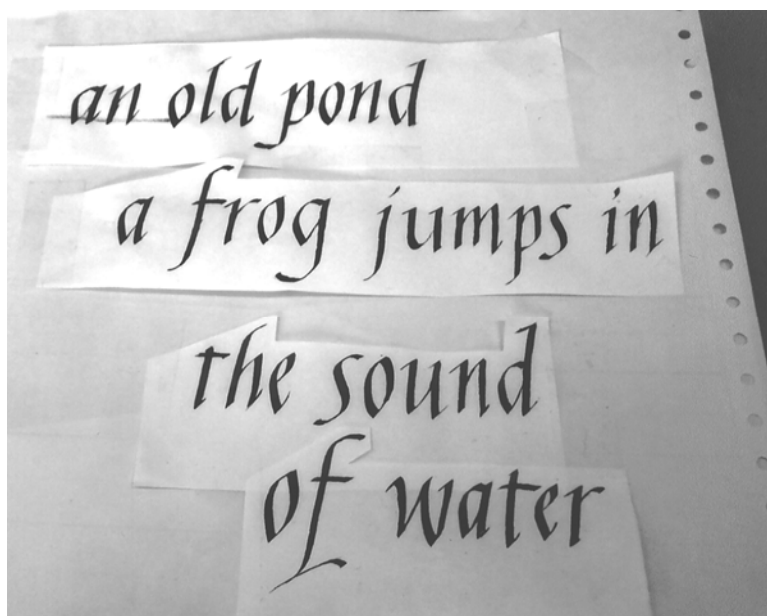 an old pond
a frog jumps in
the sound
of water